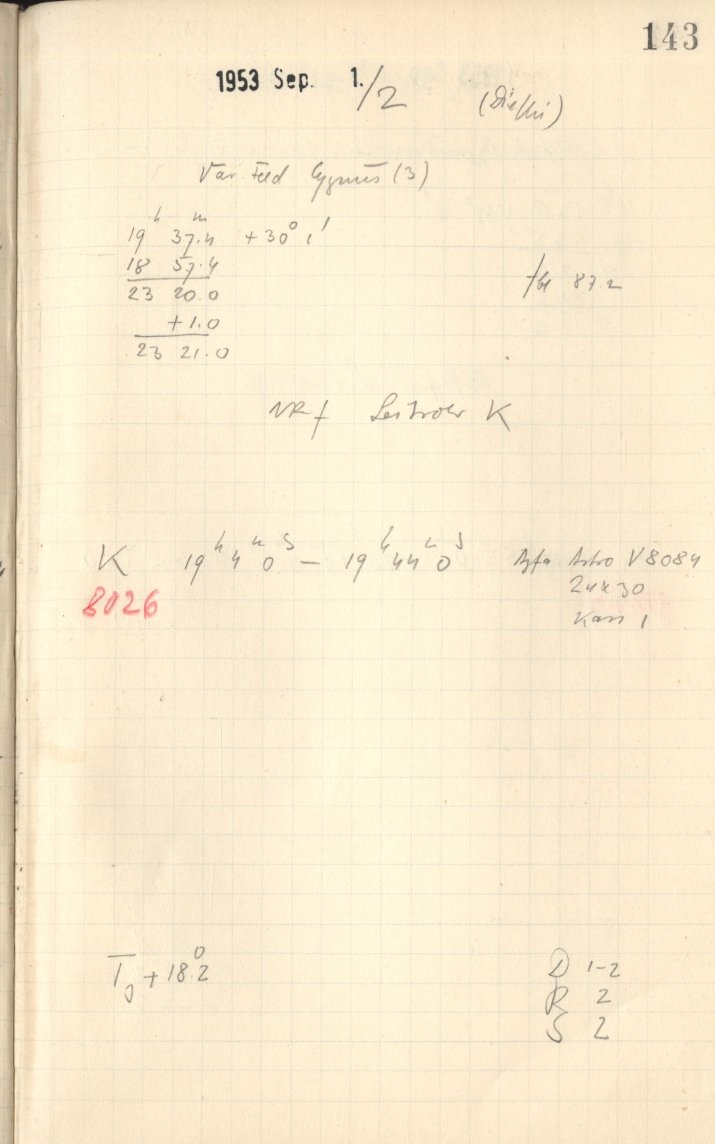 143
1953 Sep. 1./2
Var. Feld Cygnus (3)
19h 37.4m +30° 1'
18 57.4
23 20.0
+1.0
23 21.0
87.2
K
K 19h 4m 0s – 19h 44m 0s Agfa Astro V8084
8026 24x30
Kass 1
+18.2°
D 1-2
R 2
S 2